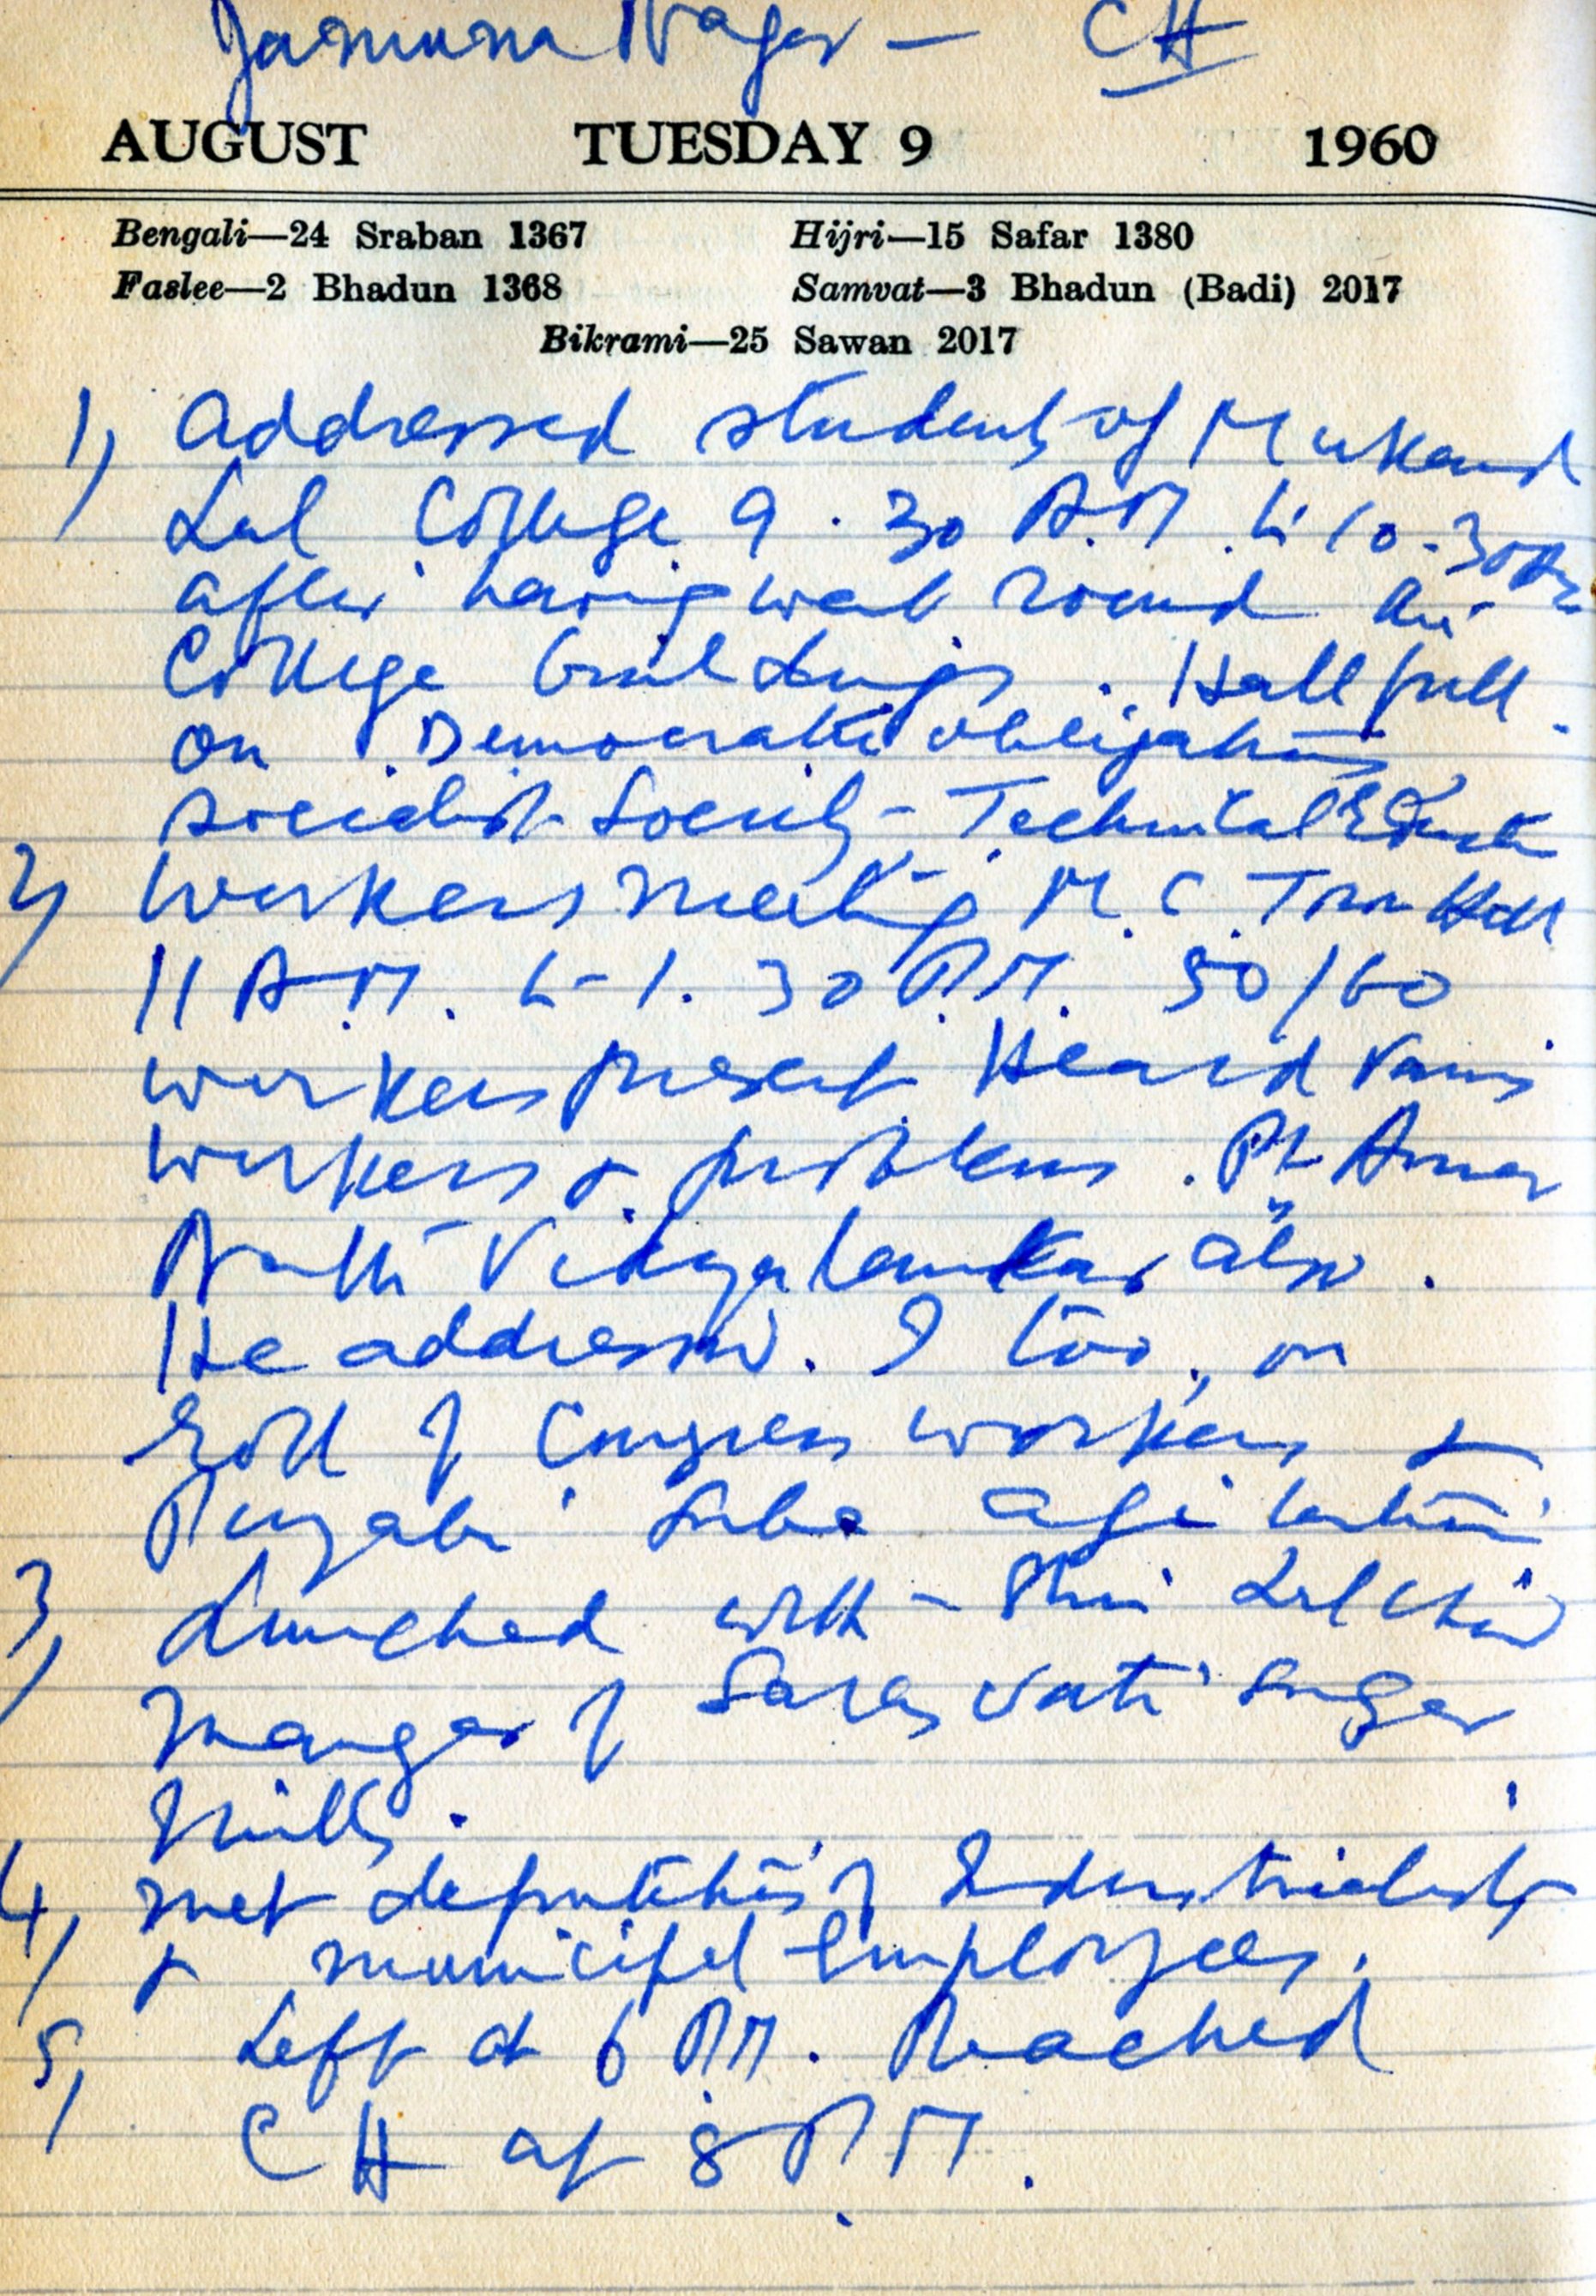 Jamuna Nagar — CH
AUGUST TUESDAY 9 1960
Bengali—24 Sraban 1367 Hijri—15 Safar 1380
Faslee—2 Bhadun 1368 Samvat—3 Bhadun (Badi) 2017
Bikrami—25 Sawan 2017
1, Addressed students of Mukand
Lal College 9.30 A.M. to 10.30 AM
after having went round the
College buildings. Hall full.
on Democratic obligations
socialist Society - Technical
2, Workers meeting M.C. Town Hall
11 A.M. to 1.30 P.M. 50/60
workers present. Heard various
workers & problems. Pt. Amar
Nath Vidyalankar also.
He addressed. I too, on
role of Congress workers &
Punjabi Suba agitation
3, Lunched with Shri
Manger of Saraswati Sugar
Mills.
4, met deputation of Industrialists
& municipal Employees.
5, Left at 6 PM. Reached
CH at 8 P.M.